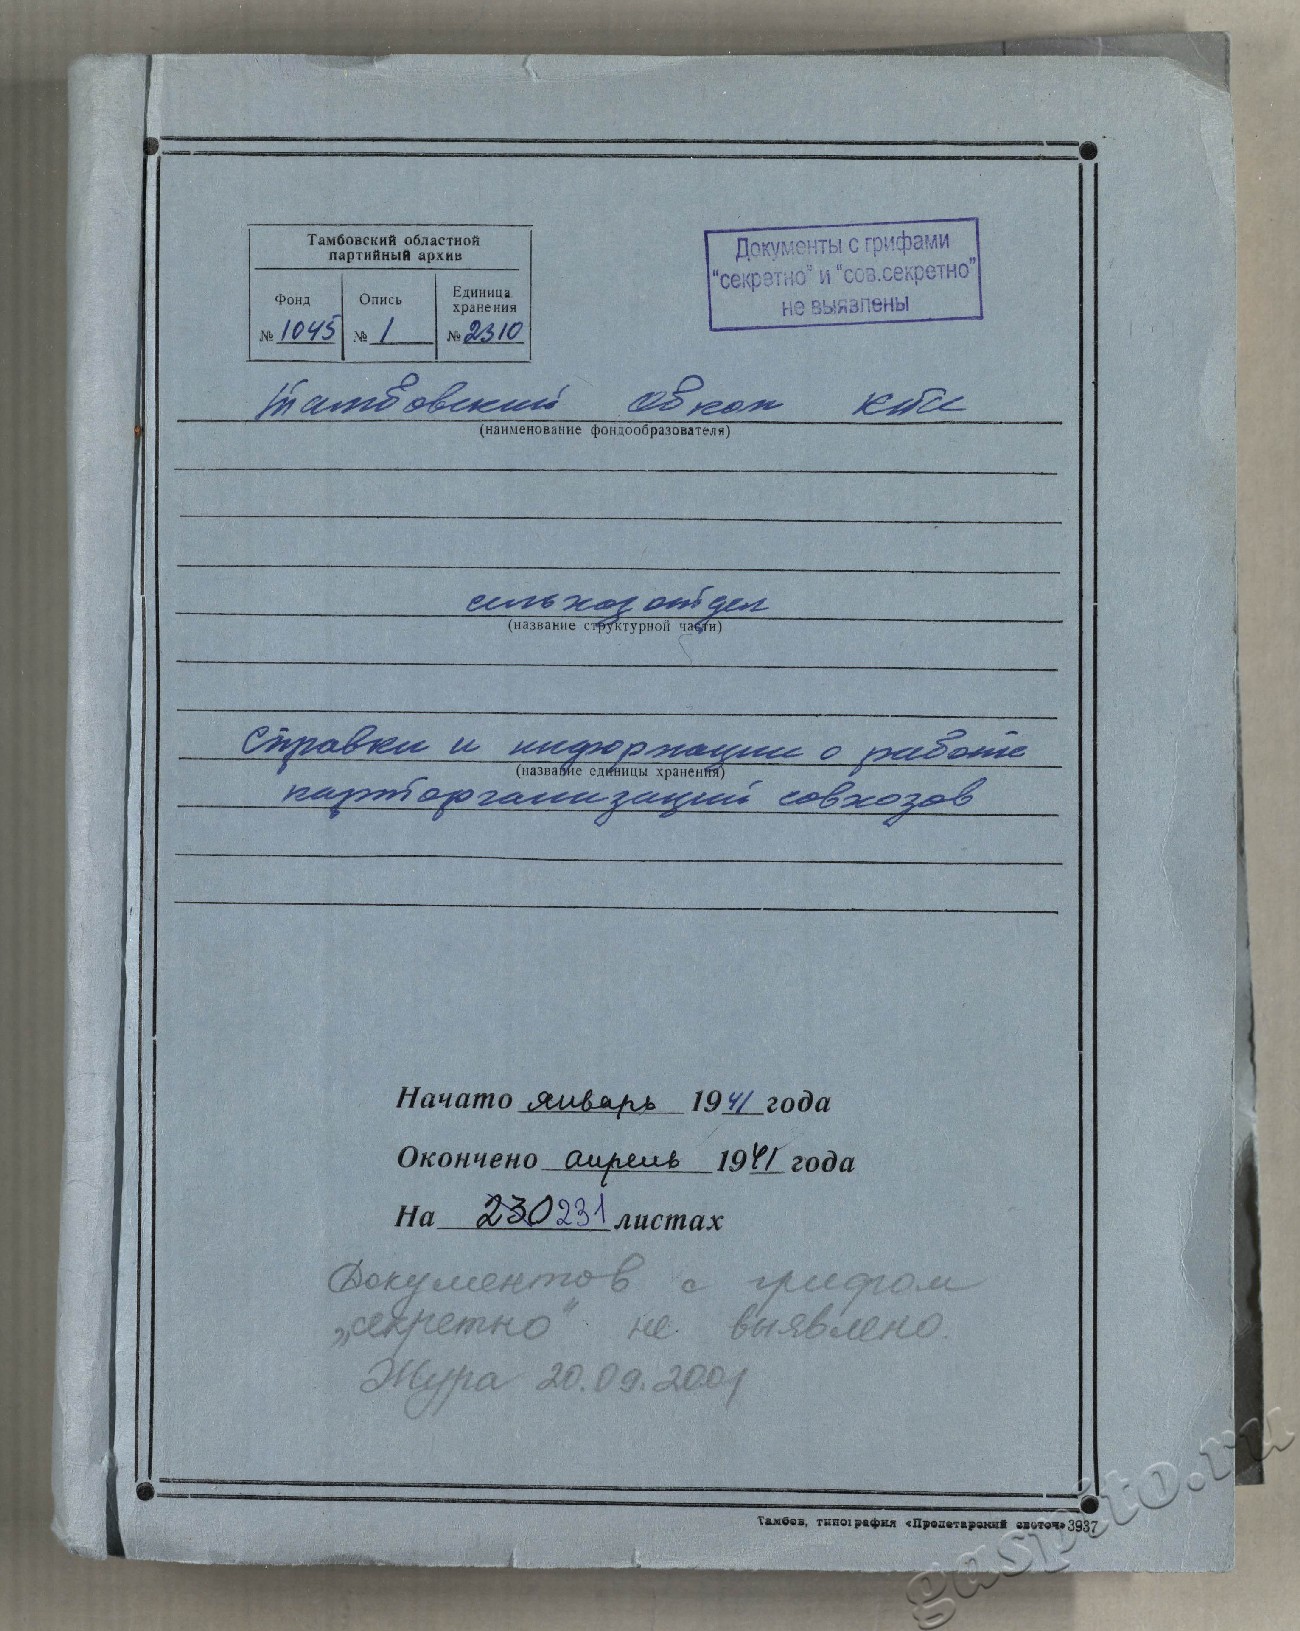 Тамбовский областной
партийный архив
Фонд
№ 1045
Опись
№ 1
Единица
хранения
№ 2310
Документы с грифами
"секретно" и "сов.секретно"
не выявлены
Тамбовский обком
(наименование фондообразователя)
сельхозотдел
(название структурной части)
Справки и информации о работе
(название единицы хранения)
парторганизаций совхозов
Начато январь 1941 года
Окончено апрель 1941 года
На 230 231 листах
Документов с грифом
„секретно" не выявлено.
Жура 20.09.2001
Тамбов, типография «Пролетарский светоч» 3937
gaspito.ru